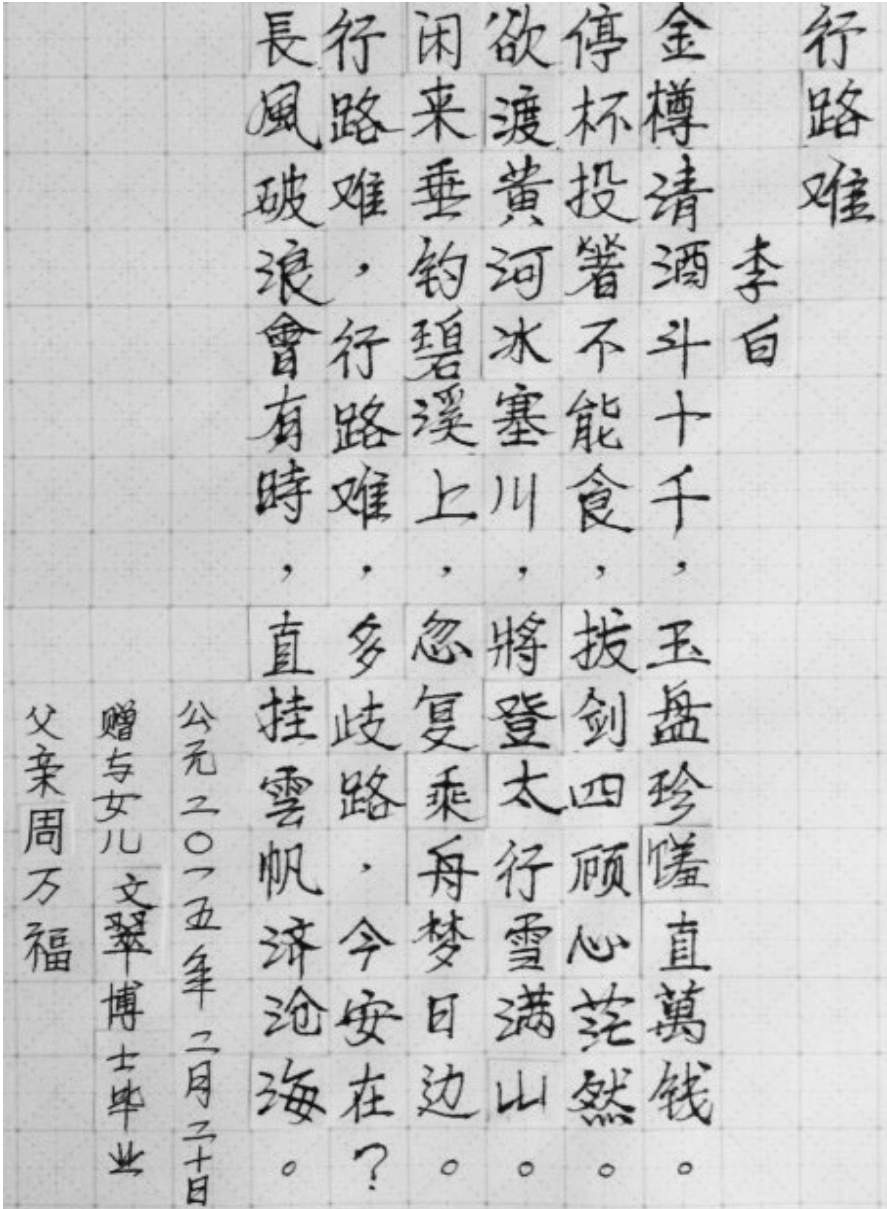 行路难
李白
金樽清酒斗十千，玉盘珍馐直萬钱。
停杯投箸不能食，拔剑四顾心茫然。
欲渡黄河冰塞川，將登太行雪满山。
闲来垂钓碧溪上，忽复乘舟梦日边。
行路难，行路难，多歧路，今安在？
長風破浪會有時，直挂雲帆济沧海。
公元二〇一五年二月二十日
赠与女儿文翠博士毕业
父亲周万福